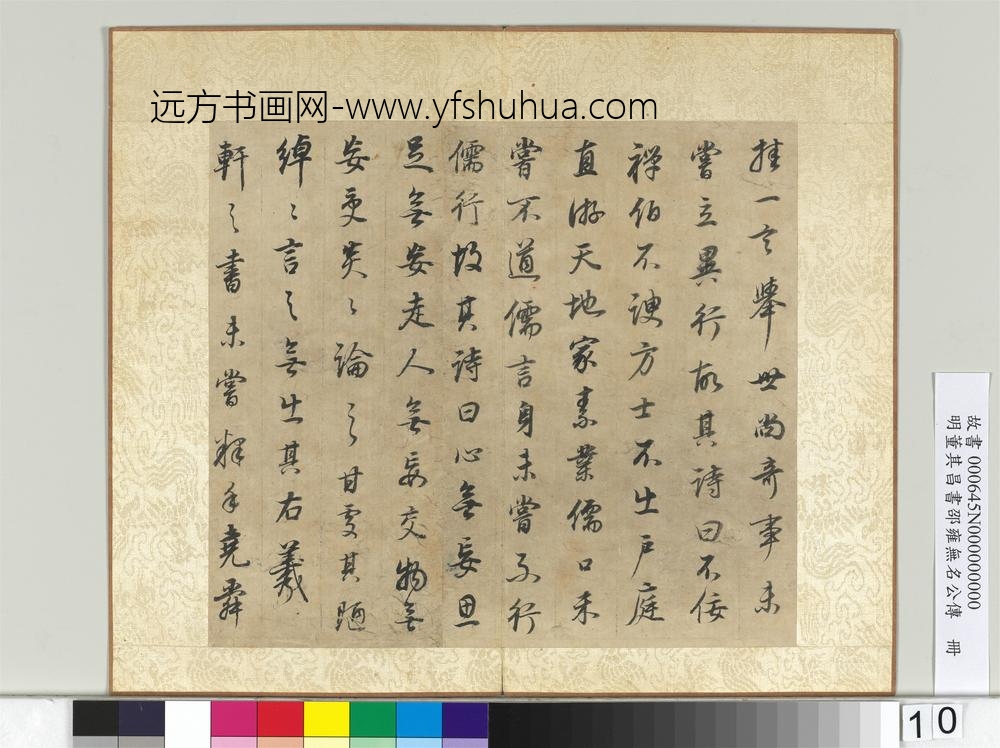 远方书画网-www.yfshuhua.com
挂一言舉世尚奇事未
嘗立異行故其詩曰不佞
禪伯不諛方士不出戶庭
直游天地家素業儒口未
嘗不道儒言身未嘗不行
儒行故其詩曰心無妄思
足無妄走人無妄交物無
妄受炎〻論之甘處其陋
綽〻言之無出其右羲
軒之書未嘗釋手堯舜
故書 000645N000000000
明董其昌書邵雍無名公傳 冊
10